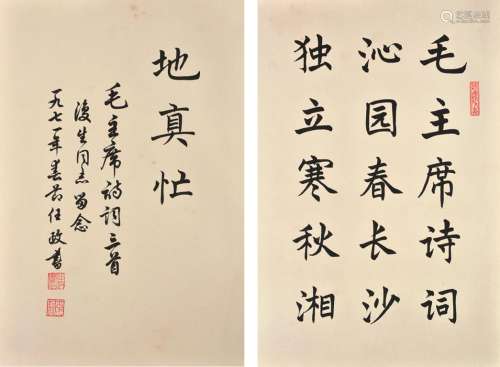 毛主席诗词
沁园春长沙
独立寒秋湘
地真忙
毛主席诗词三首
生同志留念
一九七一年春节任政书